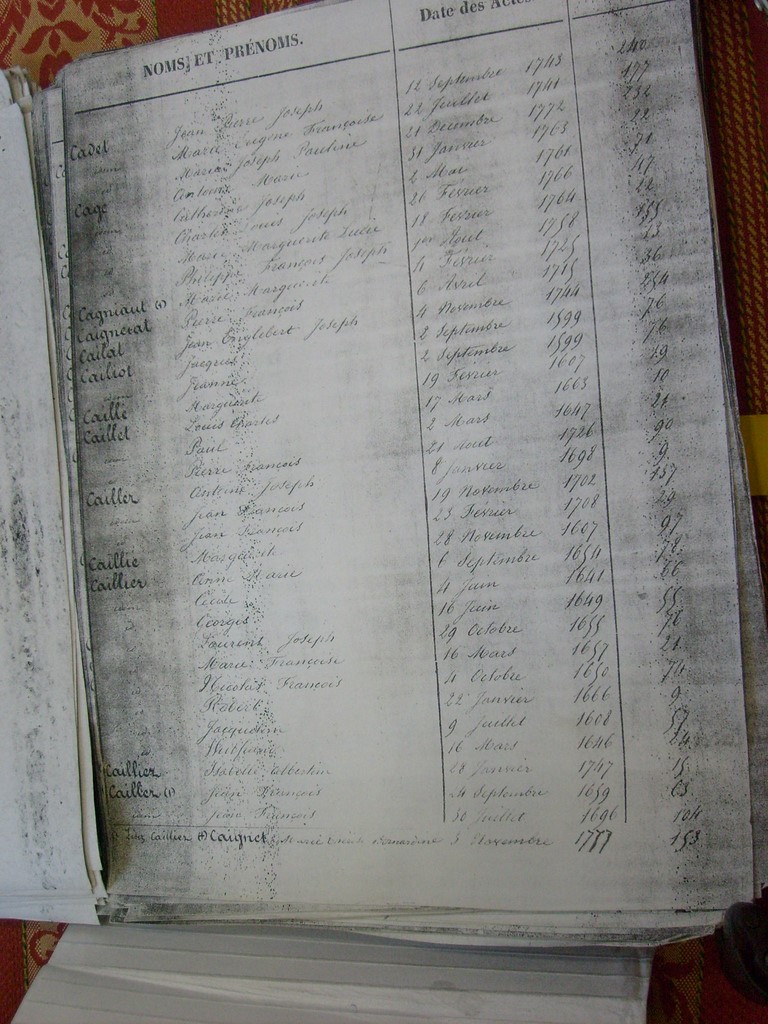 NOMS ET PRÉNOMS. Date des Actes.
Cadet Jean Pierre Joseph 12 Septembre 1743 240
Marie Eugène Françoise 22 Juillet 1741 177
Marie Joseph Pauline 21 Décembre 1772 232
Cage Antoine Marie 31 Janvier 1763 22
idem Catherine Joseph 2 Mai 1761 71
id Charles Louis Joseph 26 Février 1766 47
id Marie Marguerite Lucie 18 Février 1764 22
id Philippe François Joseph 1er Aout 1758 155
Cagniaut (1) Marie Marguerite 4 Février 1725
Caignerat Pierre François 6 Avril 1715 36
Cailat Jean Englebert Joseph 4 Novembre 1744 254
Cailiot Jacques 2 Septembre 1599 76
idem Jeanne 2 Septembre 1599 76
Caille Marguerite 19 Février 1607 19
Caillet Louis Charles 17 Mars 1663 10
idem Paul 2 Mars 1647 21
id Pierre François 21 Aout 1726 90
Cailler Antoine Joseph 8 Janvier 1698 9
idem Jean François 19 Novembre 1702 137
id Jean François 23 Février 1708 29
Caillie Marguerite 28 Novembre 1607 97
Caillier Anne Marie 6 Septembre 1654 78
idem Cécile 4 Juin 1641 66
id Georges 16 Juin 1649 55
id Laurent Joseph 29 Octobre 1655 78
id Marie Françoise 16 Mars 1657 21
id Nicolas François 4 Octobre 1650 74
id Robert 22 Janvier 1666 9
id Jacqueline 9 Juillet 1608 57
id 16 Mars 1646 24
Cailliez Isabelle Albertine 28 Janvier 1747 15
Cailler (1) Jean François 24 Septembre 1659 63
idem Jean François 30 Juillet 1696 104
Caillier (1) Caignet Marie 3 Novembre 1777 153